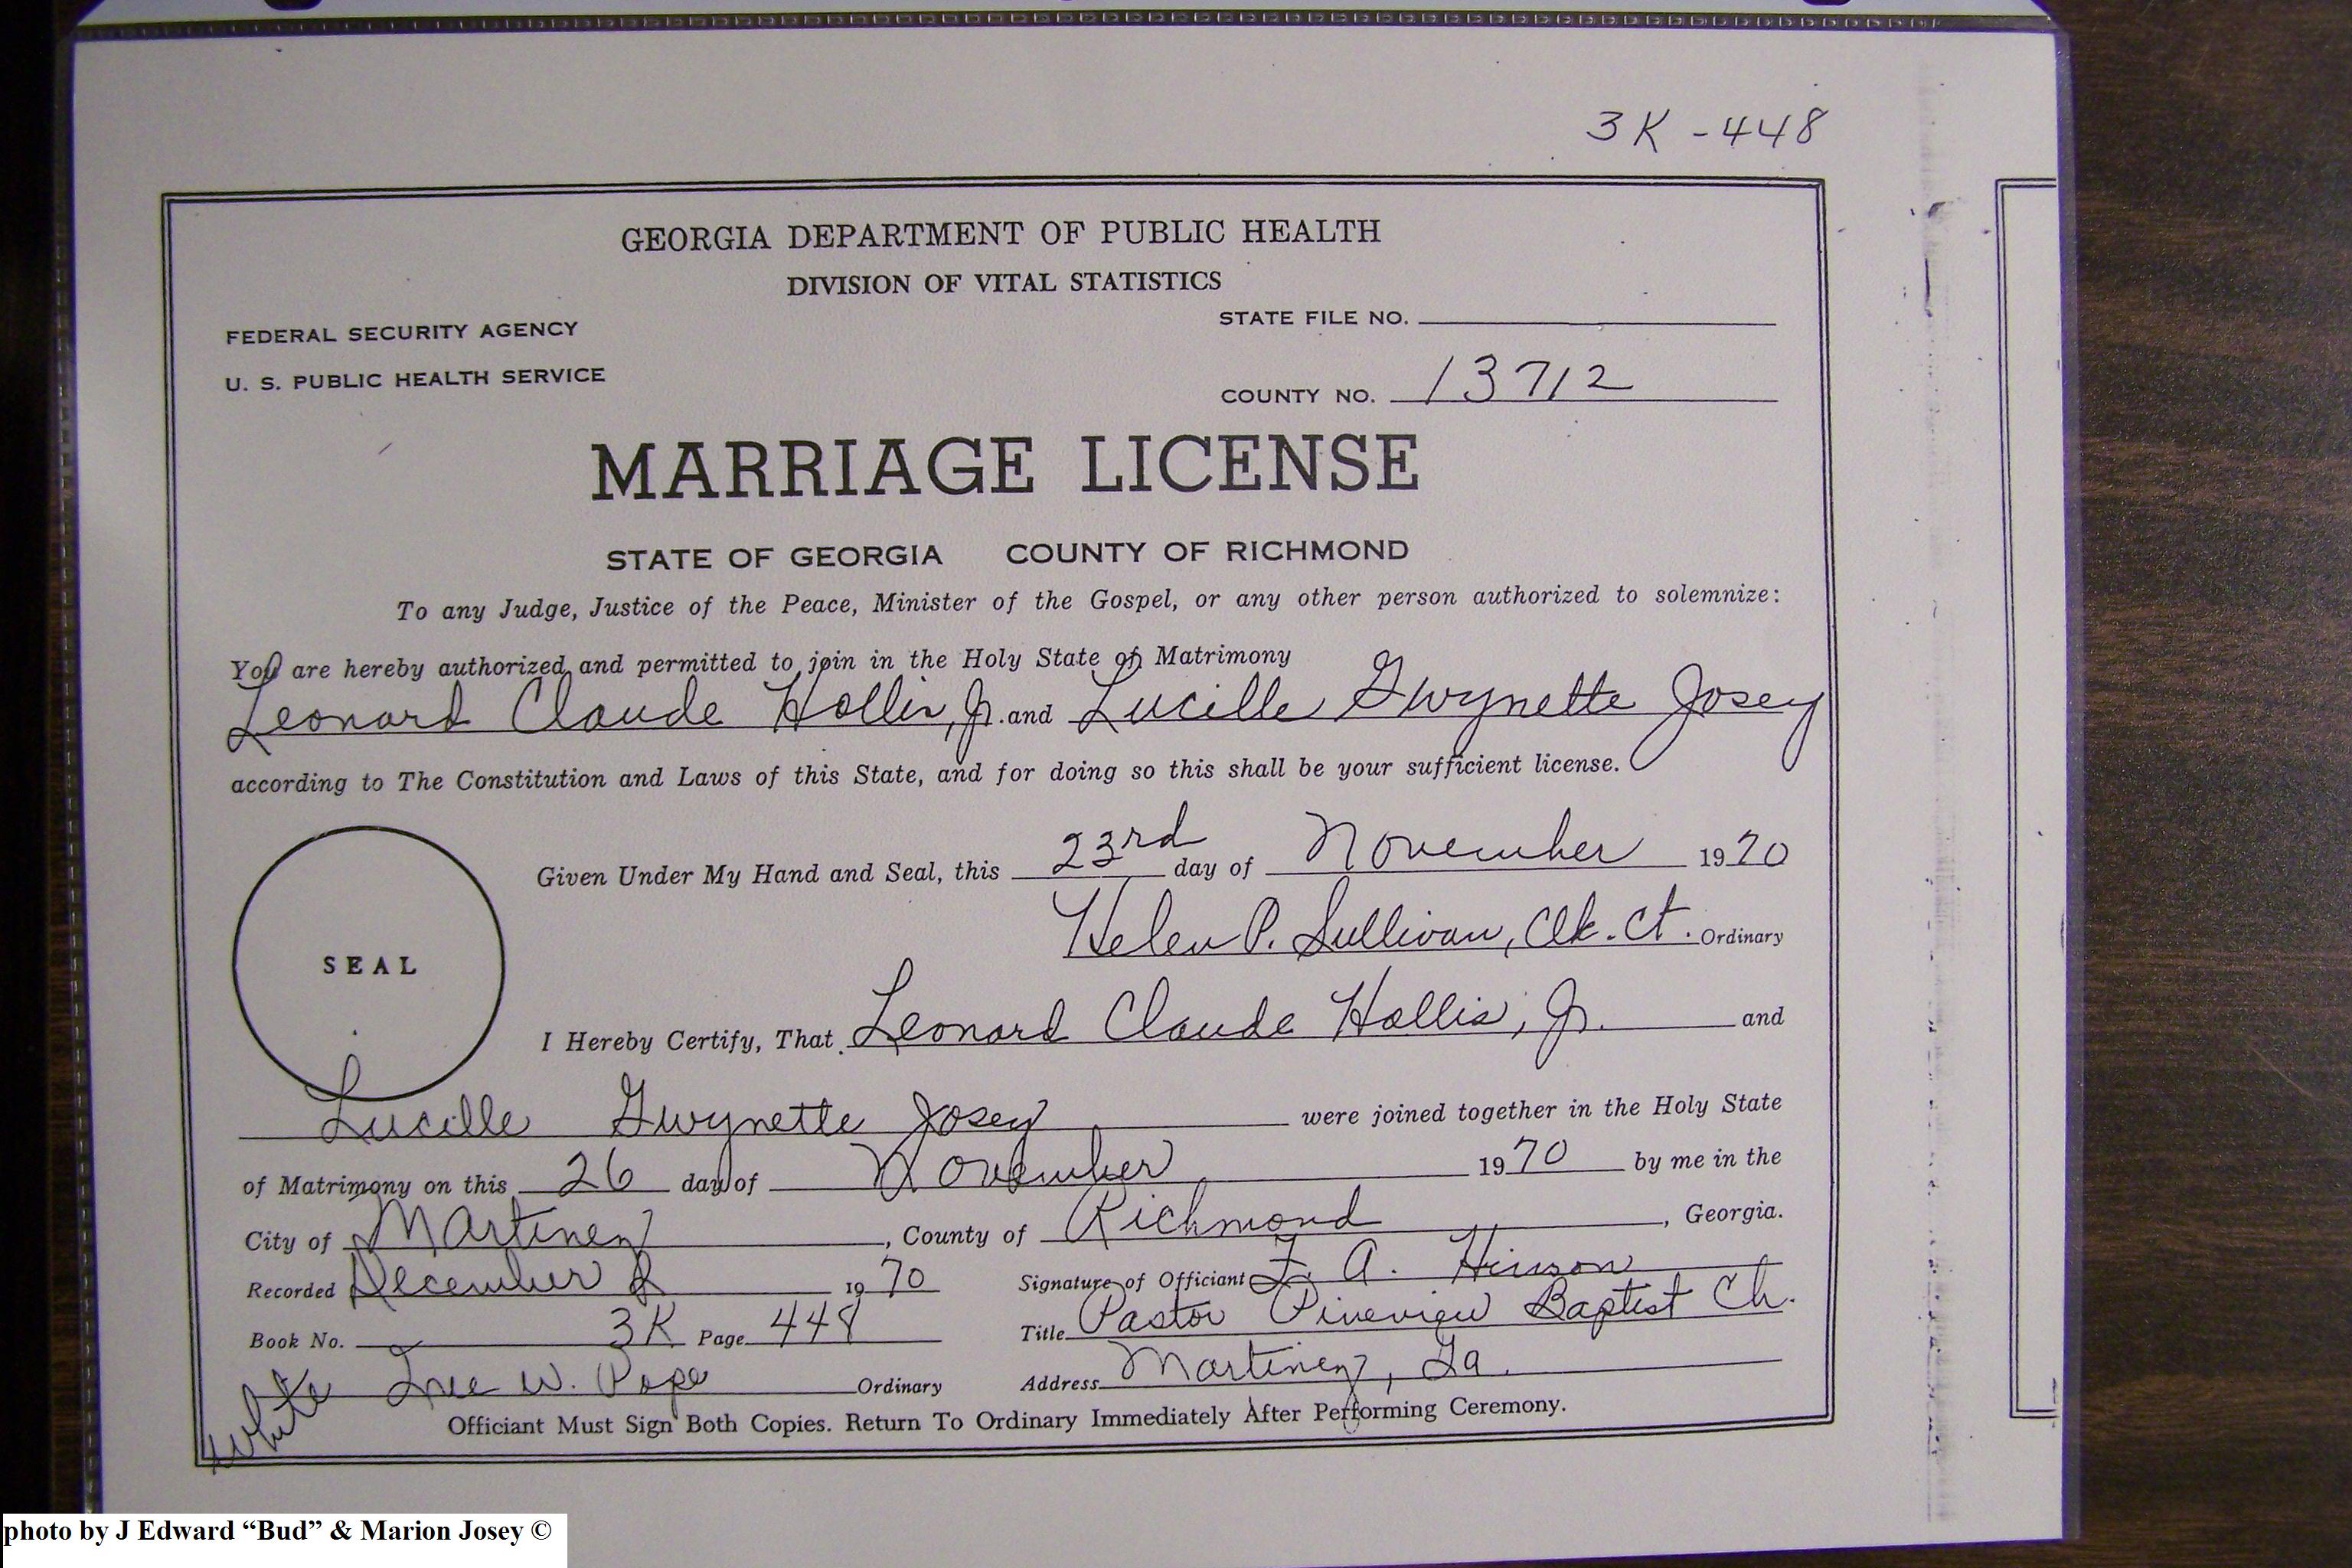 3K-448
GEORGIA DEPARTMENT OF PUBLIC HEALTH
DIVISION OF VITAL STATISTICS
FEDERAL SECURITY AGENCY
STATE FILE NO.
U. S. PUBLIC HEALTH SERVICE
COUNTY NO. 13712
MARRIAGE LICENSE
STATE OF GEORGIA COUNTY OF RICHMOND
To any Judge, Justice of the Peace, Minister of the Gospel, or any other person authorized to solemnize:
You are hereby authorized and permitted to join in the Holy State of Matrimony
Leonard Claude Hollis, Jr. and Lucille Gwynette Josey
according to The Constitution and Laws of this State, and for doing so this shall be your sufficient license.
Given Under My Hand and Seal, this 23rd day of November 1970
Helen P. Sullivan, Clk. Ct. Ordinary
SEAL
I Hereby Certify, That Leonard Claude Hollis, Jr. and
Lucille Gwynette Josey were joined together in the Holy State
of Matrimony on this 26 day of November 1970 by me in the
City of Martinez, County of Richmond, Georgia.
Recorded December 2 1970 Signature of Officiant A. Hinson
Book No. 3K Page 448 Title Pastor Pineview Baptist Ch.
White W. Pope Ordinary Address Martinez, Ga.
Officiant Must Sign Both Copies. Return To Ordinary Immediately After Performing Ceremony.
photo by J Edward “Bud” & Marion Josey ©